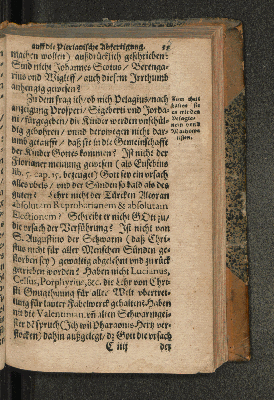 auff die Pierianische Abfertigung. 
machen wollen / außdrücklich geschrieben:
Sind nicht Johannes Scotus / Berenga-
rius und Wigleff / auch diesem Irrthumb
anhengig gewesen?
Zu dem frag ich / ob nich Pelagius / nach
anzeigung Prosperi / Sigeberti und Jorda-
ni / fürgegeben / die Kinder werden unschül-
dig gebohren / unnd derowegen nicht dar-
umb getaufft / daß sie in die Gemeinschafft
der Kinder Gottes kommen? Ist nicht der
Florianer meinung gewesen (als Eusebius
lib. 5. cap. 15. bezeuget) Gott sey ein ursach
alles ubels / und der Sünden so bald als des
guten? Lehrt nicht der Türcken Alcoran
absolutam Reprobationem & absolutam
Electionem? Schreibt er nicht GOtt zu /
die ursach der Verführung? Ist nicht von
S. Augustino der Schwarm (daß Chri-
stus nicht für aller Menschen Sünden ge-
storben sey) gewaltig abgeleynt und zurück
getrieben worden? Haben nicht Lucianus,
Celsus, Porphyrius, &c. die Lehr von Chri-
sti Gnugthuung für aller Welt ubertret-
tung für lauter Fabelwerck gehalten? Haben
nicht die Valentinian. uñ alten Schwarmgei-
ster dē spruch (Ich wil Pharaonis Hertz ver-
stocken) dahin außgelegt / dz Gott die ursach
C iiij der
Nam theil
haltes sie
es mit den
Pelagia-
nern unnd
Mahome-
tisten.